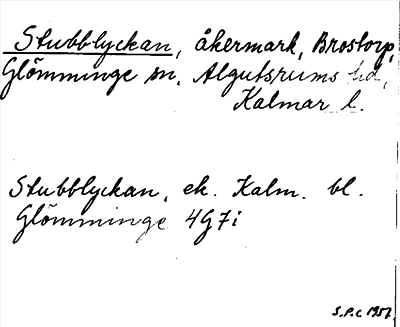 Stubblyckan, åkermark, Brostorp,
Glömminge sn, Algutsrums hd,
Kalmar l.
Stubblyckan, ek. Kalm. bl.
Glömminge 4G7i
S.P.C 1957